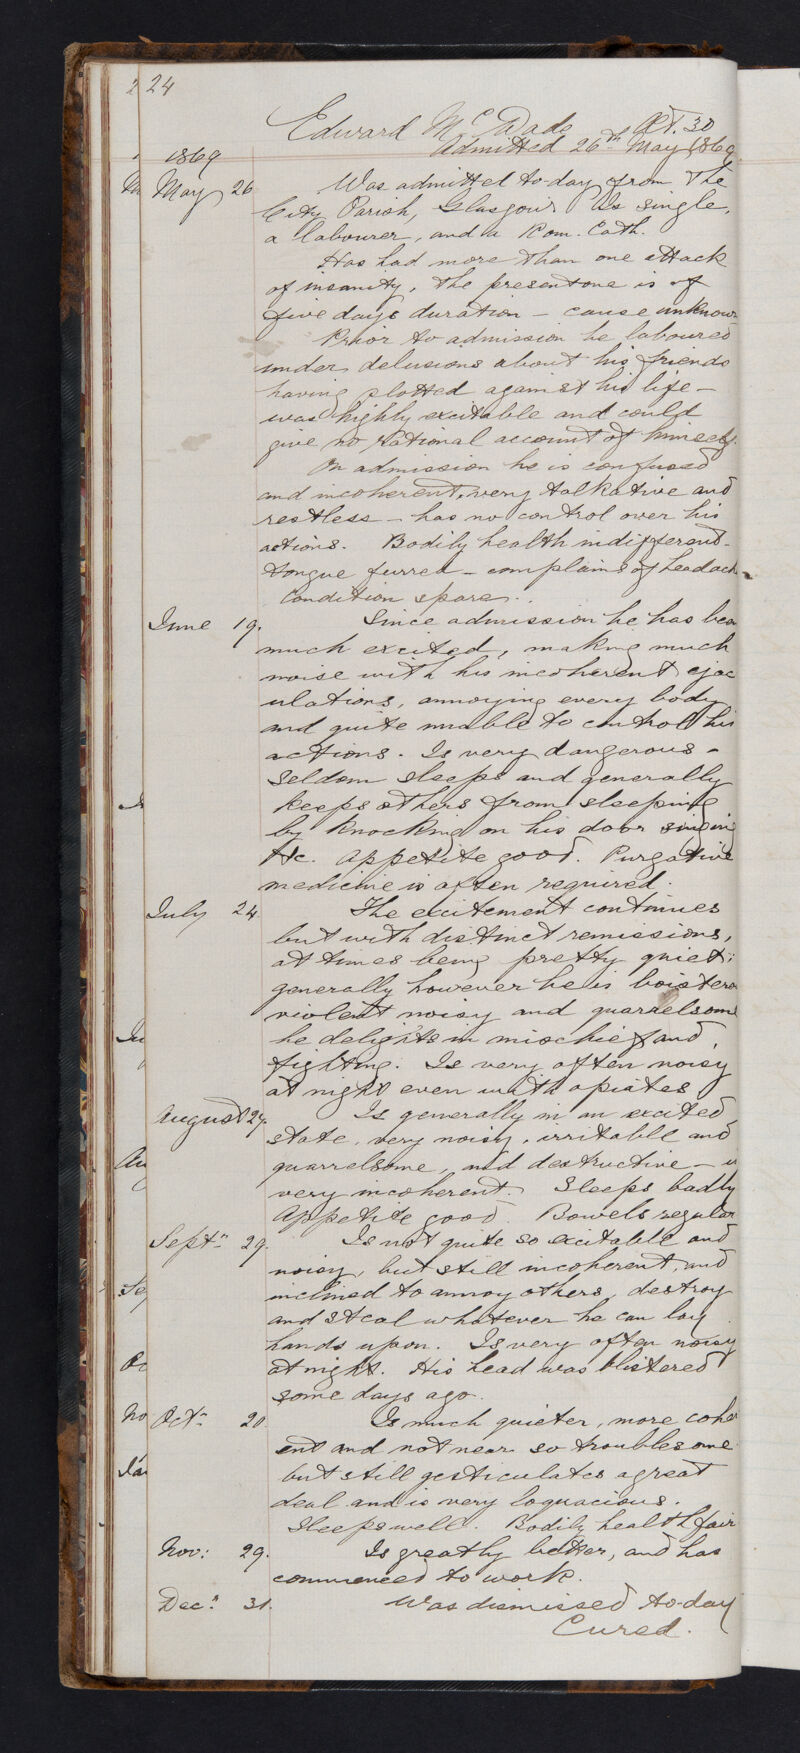 24
Edward McDade Æt. 30
Admitted 26th May 1869
1869
May 26 Was admitted to-day from the
City Parish, Glasgow. Is single,
a labourer, and a Rom. Cath.
Has had more than one attack
of insanity, the present one is of
five days duration — cause unknown
Prior to admission he laboured
under delusions about his friends
having plotted against his life —
was highly excitable and could
give no rational account of himself.
On admission he is confused
and incoherent, very talkative and
restless — has no control over his
actions. Bodily health indifferent —
tongue furred — complains of headach
Condition spare.
June 19. Since admission he has been
much excited, making much
noise with his incoherent ejac
ulations, annoying every body
and quite unable to control his
actions. Is very dangerous —
Seldom sleeps and generally
keeps others from sleeping
by knocking on his door singing
&c. Appetite good. Purgative
medicine is often required.
July 24 The excitement continues
but with distinct remissions,
at times being pretty quiet;
generally however he is boistero
violent noisy and quarrelsome
he delights in mischief and
fighting. Is very often noisy
at night even with opiates
August 29. Is generally in an excited
state, very noisy, irritable and
quarrelsome, and destructive — is
very incoherent. Sleeps badly
Appetite good. Bowels regular
Septr. 29. Is not quite so excitable and
noisy, but still incoherent, and
inclined to annoy others, destroy
and steal whatever he can lay
hands upon. Is very often noisy
at night. His head was blistered
some days ago.
Octr. 20 Is much quieter, more coher
ent and not near so troublesome
but still gesticulates a great
deal and is very loquacious.
Sleeps well. Bodily health fair
Nov: 29. Is greatly better, and has
commenced to work.
Decr. 31. Was dismissed to-day
Cured.